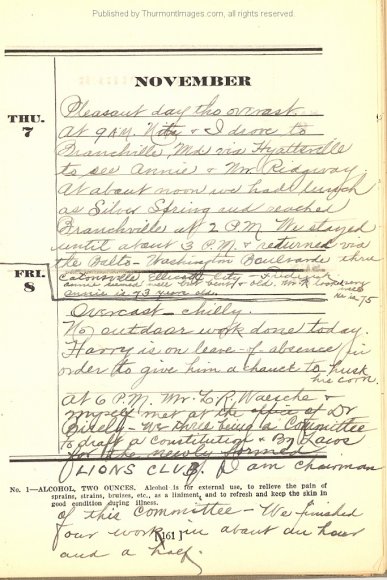 Published by ThurmontImages.com, all rights reserved.
NOVEMBER
THU.
7
Pleasant day tho overcast
At 9 A.M. & I drove to
Branchville, Md via Hyattsville
to see Annie & Wm Ridgway
At about noon we had lunch
at Silver Spring and reached
Branchville at 2 P.M. We stayed
until about 3 P.M. & returned via
the Balto - Washington Boulevarde thru
Catonsville Ellicott City - Frederick
Annie seemed well but bent & old. Wm is
Annie is 73 years old. He is 75
FRI.
8
Overcast - chilly.
No outdoor work done today.
Harry is on leave of absence in
order to give him a chance to husk
his corn.
At 6 P.M. Mr. E.R. Waesche &
myself met at the office of Dr
Birely - We three being a Committee
to draft a Constitution & By Laws
for the newly formed
LIONS CLUB. I am chairman
No. 1—ALCOHOL, TWO OUNCES. Alcohol is for external use, to relieve the pain of
sprains, strains, bruises, etc., as a liniment, and to refresh and keep the skin in
good condition during illness.
of this committee - We finished
our work in about an hour
[161]
and a half.